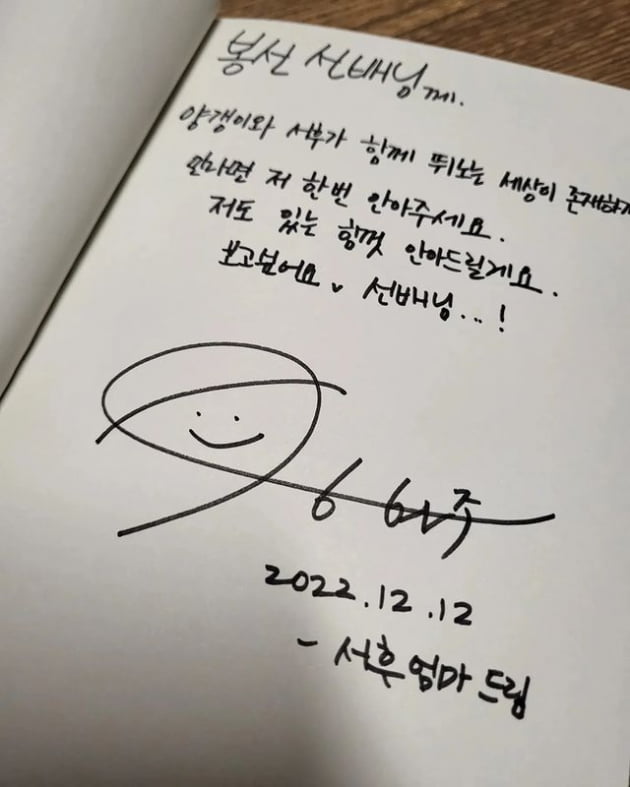 봉선 선배님께.
양갱이와 서후가 함께 뛰노는 세상이 존재하지
안다면 저 한번 안아주세요.
저도 있는 힘껏 안아드릴게요.
보고싶어요 선배님...!
2022.12.12
- 서후 엄마 드림